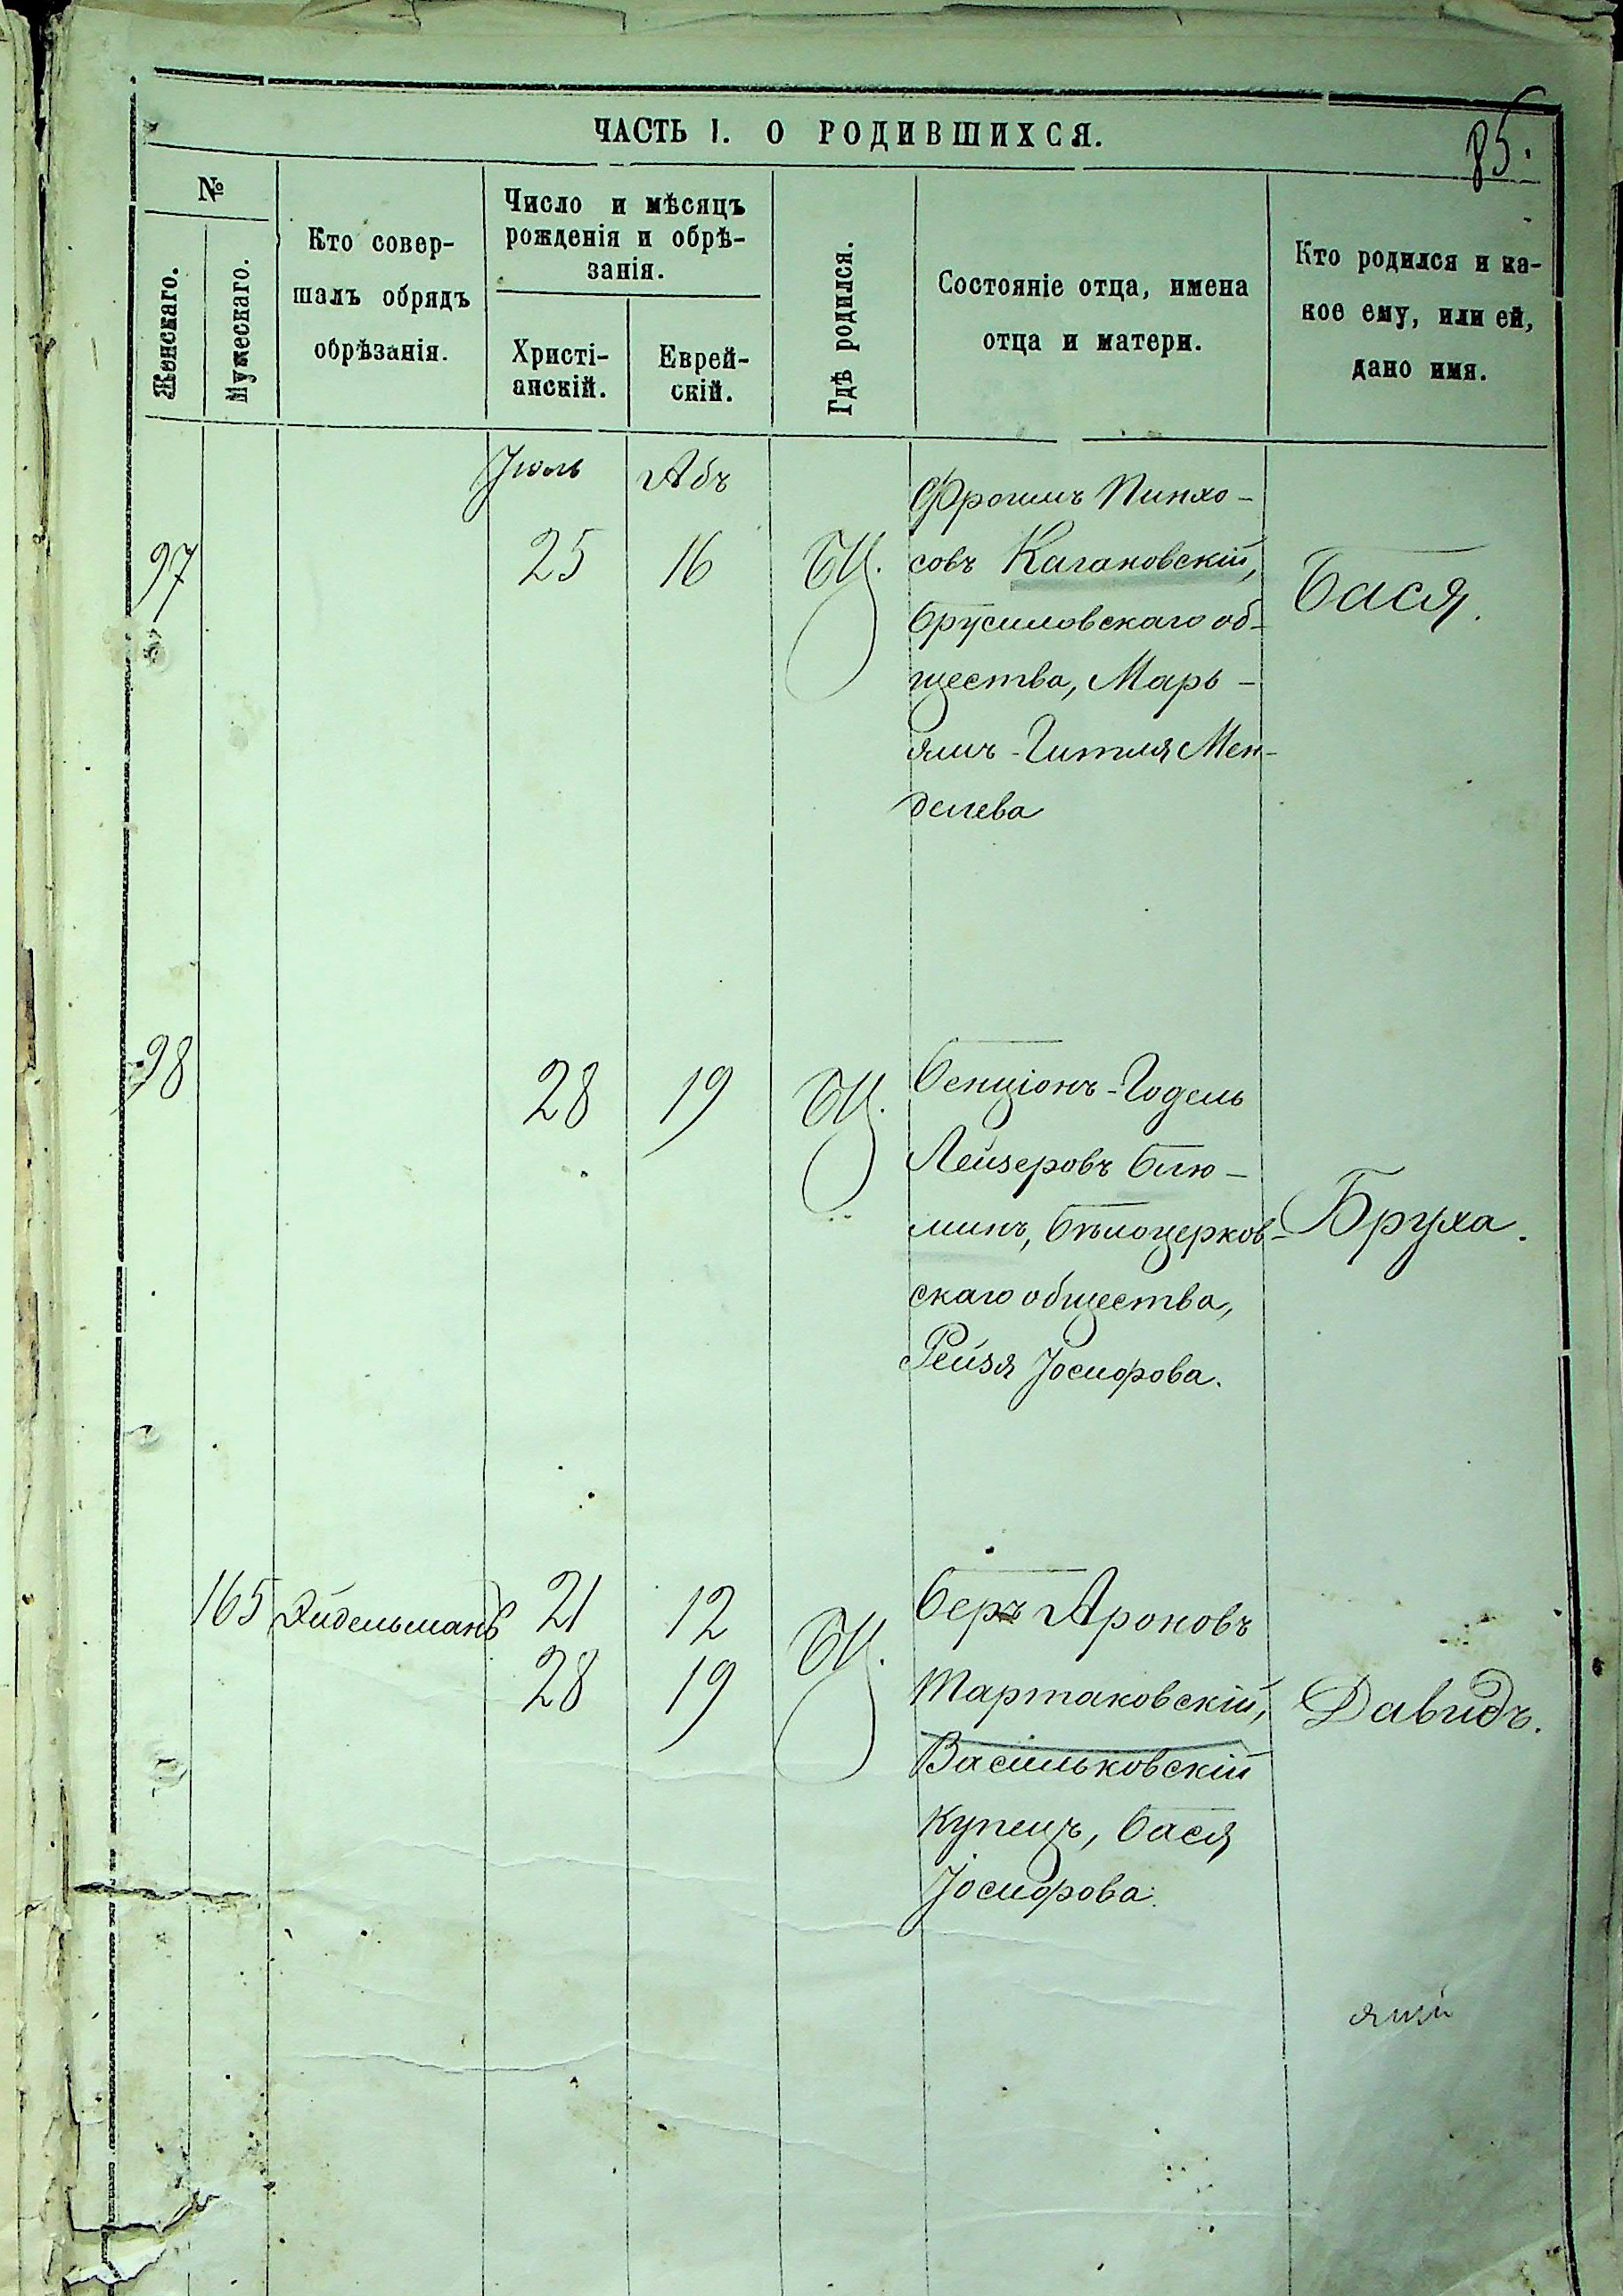 ЧАСТЬ I. О РОДИВШИХСЯ.
85.
№
Женскаго.
Мужескаго.
Кто совер-
шалъ обрядъ
обрѣзанія.
Число и мѣсяцъ
рожденія и обрѣ-
занія.
Христі-
анскій.
Еврей-
скій.
Гдѣ родился.
Состояніе отца, имена
отца и матери.
Кто родился и ка-
кое ему, или ей,
дано имя.
Іюль
Абъ
97
25
16
БЦ.
Фроимъ Пинхо-
совъ Кагановскій,
Брусиловскаго об-
щества, Марь-
ямъ-Гитля Мен-
делева
Бася.
98
28
19
БЦ.
Бенціонъ-Годель
Лейзеровъ Блю-
минъ, Бѣлоцерков-
скаго общества,
Рейзя Іосифова.
Бруха.
165
Эйдельманъ
21
12
28
19
БЦ.
Беръ Ароновъ
Тартаковскій,
Васильковскій
Купецъ, Бася
Іосифова.
Давидъ.